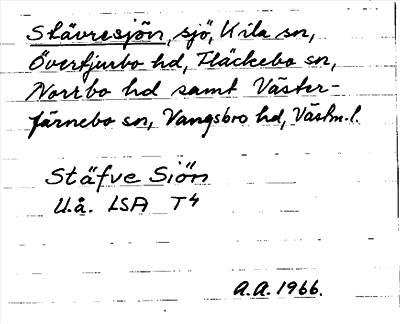 Stävresjön, sjö, Kila sn,
Övertjurbo hd, Fläckebo sn,
Norrbo hd samt Väster-
färnebo sn, Vangsbro hd, Västm.l.
Stäfve Siön
U.å. LSA T4
A.A. 1966.